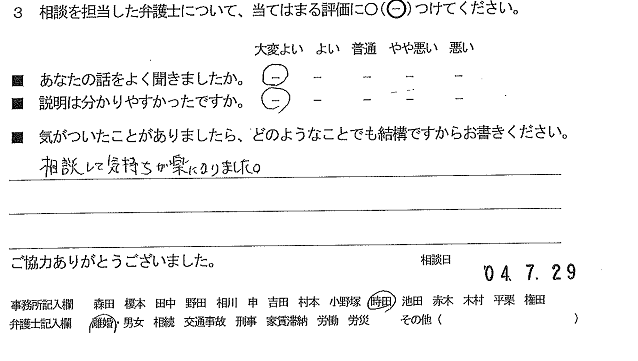 3 相談を担当した弁護士について、当てはまる評価に○(－)つけてください。
大変よい よい 普通 やや悪い 悪い
■ あなたの話をよく聞きましたか。 － － － － －
■ 説明は分かりやすかったですか。 － － － － －
■ 気がついたことがありましたら、どのようなことでも結構ですからお書きください。
相談して気持ちが楽になりました。
ご協力ありがとうございました。 相談日 '04.7.29
事務所記入欄 森田 榎本 田中 野田 相川 申 吉田 村本 小野塚 時田 池田 赤木 木村 平栗 権田
弁護士記入欄 離婚・男女 相続 交通事故 刑事 家賃滞納 労働 労災 その他（ ）